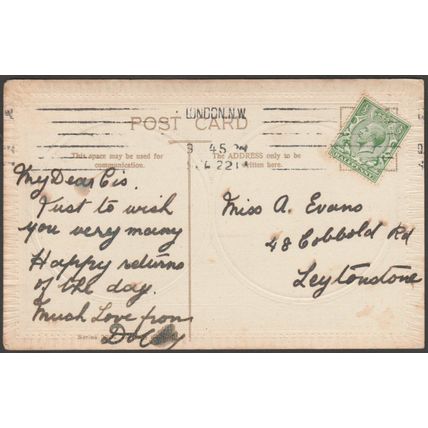 LONDON.N.W
POST CARD
45 PM
22 1
This space may be used for communication.
The ADDRESS only to be written here.
HALFPENNY
My Dear Cis.
Just to wish
you very many
Happy returns
of the day.
Much Love from
Dolly
Miss A. Evans
48 Cobbold Rd
Leytonstone
Series